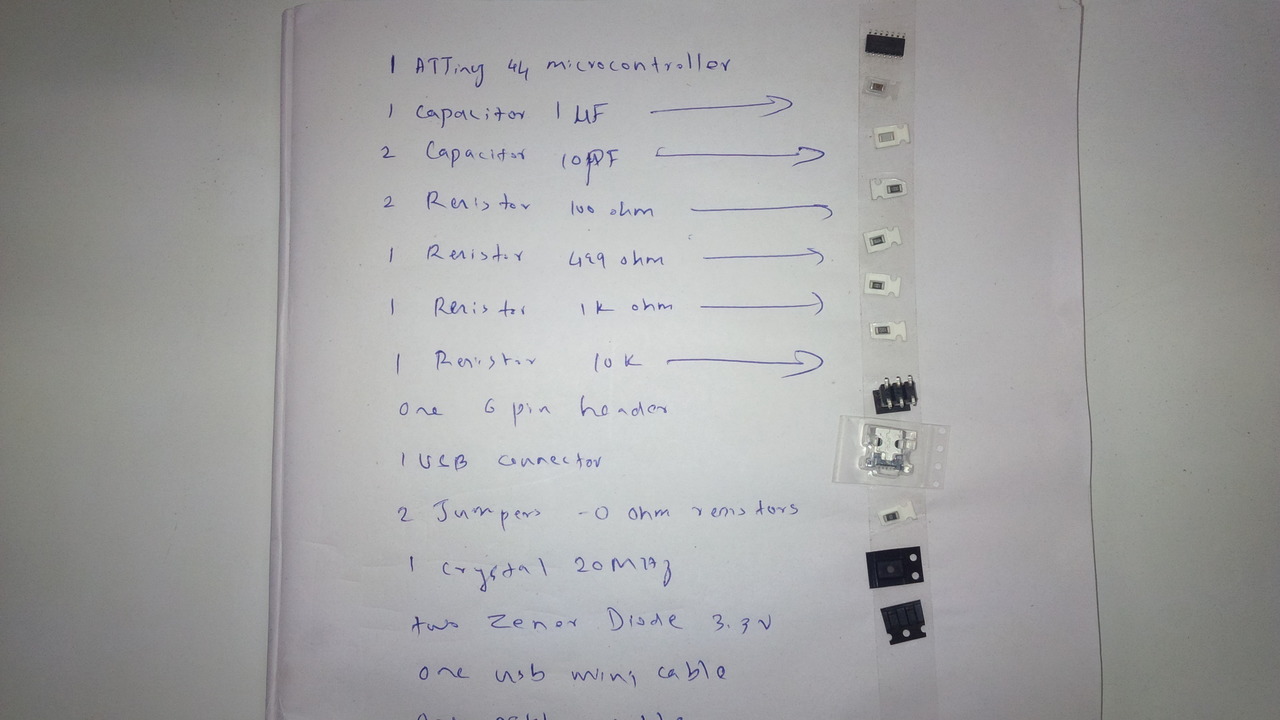 1 ATTiny 44 microcontroller
1 Capacitor 1 µF
2 Capacitor 10pF
2 Resistor 100 ohm
1 Resistor 499 ohm
1 Resistor 1k ohm
1 Resistor 10K
one 6 pin header
1 USB connector
2 Jumpers -0 ohm resistors
1 crystal 20MHz
two Zener Diode 3.3v
one usb mini cable